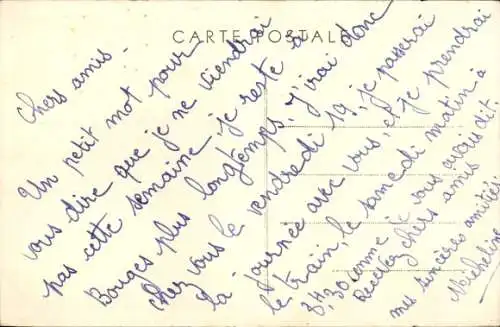 CARTE POSTALE
Chers amis.
Un petit mot pour
vous dire que je ne viendrai
pas cette semaine, je reste à
Bouges plus longtemps. J'irai donc
chez vous le vendredi 19, je passerai
la journée avec vous, et je prendrai
le train, le samedi matin à
8H,30 comme je vous avais dit
Recevez chers amis
mes sincères amitiés
Micheline